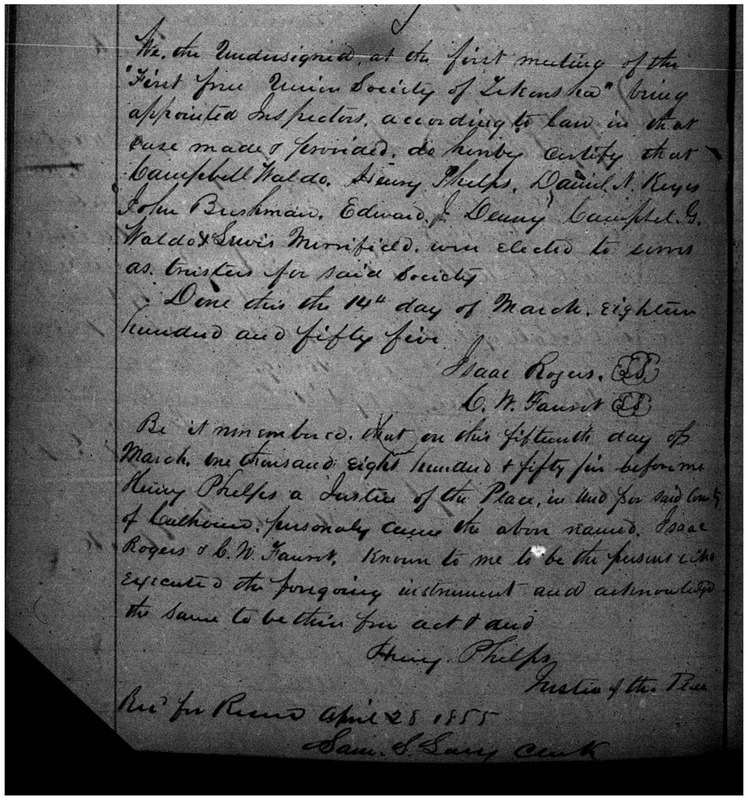 We, the Undersigned, at the first meeting of the
"First free Union Society of Tekonsha" being
appointed Inspectors, according to law in that
case made & provided, do hereby certify that
Campbell Waldo, Henry Phelps, Daniel N. Keyes
John Bushman, Edward J. Denny Campbel. G.
Waldo & Lewis Merrifield. were elected to serve
as trustees for said Society
Done this the 14th day of March. Eighteen
hundred and fifty five
Isaac Rogers. LS
C. W. Faurot LS
Be it remembered. that on this fifteenth day of
March, one thousand eight hundred & fifty five before me
Henry Phelps a Justice of the Peace, in and for said County
of Calhoun, personaly came the above named, Isaac
Rogers & C. W. Faurot, Known to me to be the persons who
executed the foregoing instrument and acknowledged
the same to be their free act & deed
Henry Phelps
Justice of the Peace
Recd for Record April 28 1855
Sam. S. Clerk